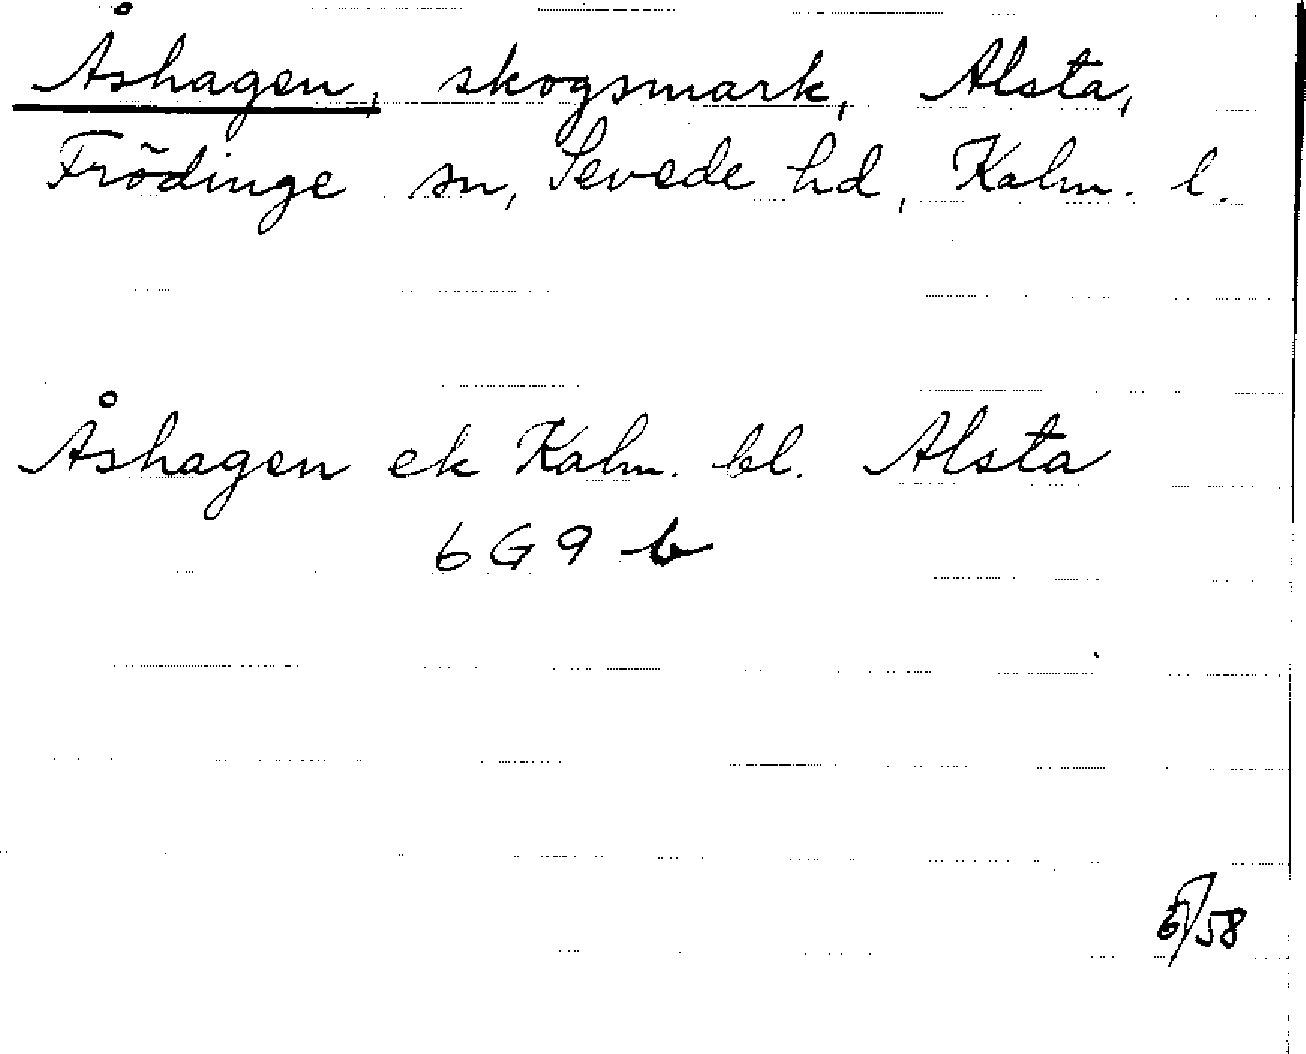 Åshagen, skogsmark, Alsta,
Frödinge sn, Sevede hd, Kalm. l.
Åshagen ek Kalm. bl. Alsta
6G9 b